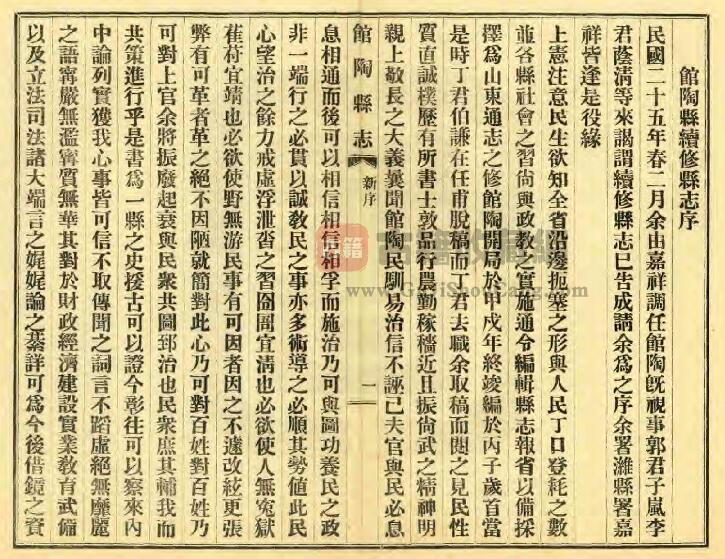 館陶縣續修縣志序
民國二十五年春二月余由嘉祥調任館陶旣視事郭君子嵐李
君蔭淸等來謁謂續修縣志已吿成請余爲之序余署濰縣署嘉
祥皆逢是役緣
上憲注意民生欲知全省沿邊扼塞之形與人民丁口登耗之數
並各縣社會之習尙與政敎之實施通令編輯縣志報省以備採
擇爲山東通志之修館陶開局於甲戌年終竣編於丙子歲首當
是時丁君伯謙在任甫脫稿而丁君去職余取稿而閱之見民性
質直誠樸歷有所書士敦品行農勤稼穡近且振尙武之精神明
親上敬長之大義曩聞館陶民馴易治信不誣已夫官與民必息
館陶縣志
新序
一
息相通而後可以相信相信相孚而施治乃可與圖功養民之政
非一端行之必貫以誠敎民之事亦多術導之必順其勢値此民
心望治之餘力戒虛浮泄沓之習囹圄宜淸也必欲使人無冤獄
萑苻宜靖也必欲使野無游民事有可因者因之不遽改絃更張
弊有可革者革之絕不因陋就簡對此心乃可對百姓對百姓乃
可對上官余將振發起衰與民衆共圖郅治也民衆庶其輔我而
共策進行乎是書爲一縣之史援古可以證今彰往可以察來內
中論列實獲我心事皆可信不取傳聞之詞言不蹈虛絕無靡麗
之語寗嚴無濫寗質無華其對於財政經濟建設實業敎育武備
以及立法司法諸大端言之娓娓論之綦詳可爲今後借鏡之資
www.GuJiShouCang.com